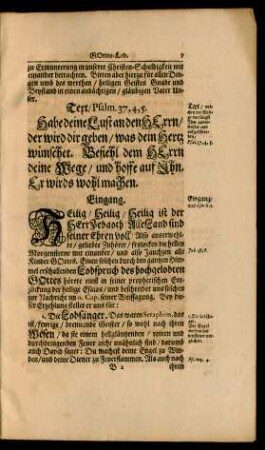 GOttes-Lob. 9
zu Ermunterung in unserer Christen-Schuldigkeit mit
einander betrachten. Bitten aber hierzu für allen Din-
gen umb des werthen / heiligen Geistes Gnade und
Beystand in einen andächtigen / gläubigen Vater Un-
ser.
Text / Psalm. 37, 4. 5.
Habe deine Lust an den HErrn /
der wird dir geben / was dein Hertz
wünschet. Befiehl dem HErrn
deine Wege / und hoffe auf Ihn.
Er wirds wohl machen.
Eingang.
HEilig / Heilig / Heilig ist der
HErr Zebaoth Alle Land sind
seiner Ehren voll! Also
/ geliebte Zuhörer / frolocken die hellen
Morgensterne mit einander / und also jauchzen alle
Kinder GOttes. Einen solchen durch den gantzen Him-
mel erschallenden Lobspruch des hochgelobten
GOttes hörete einst in seiner prophetischen Ent-
zückung der heilige Esaias / und beschreibet uns solchen
zur Nachricht im 6. Cap. seiner Weissagung. Bey die-
ser Erzehlung stellet er uns für:
1. Die Lobsänger. Das waren Seraphim, das
ist / feurige / brennende Geister / so wohl nach ihren
Wesen / da sie einem hellgläntzenden / reinen und
durchdringenden Feuer nicht unähnlich sind / darumb
auch David saget: Du machest deine Engel zu Win-
den / und deine Diener zu Feuerflammen. Als auch nach
B 2 ihren
Text /
Psal. 37. 4. 5.
Eingang /